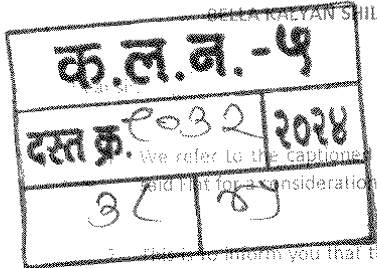 BELLA KALYAN SHIL
क.ल.न.-५
दस्त क्र. ९०३२ २०२४
We refer to the captioned
said Flat for a consideration
३८ ४५
This is to inform you that t